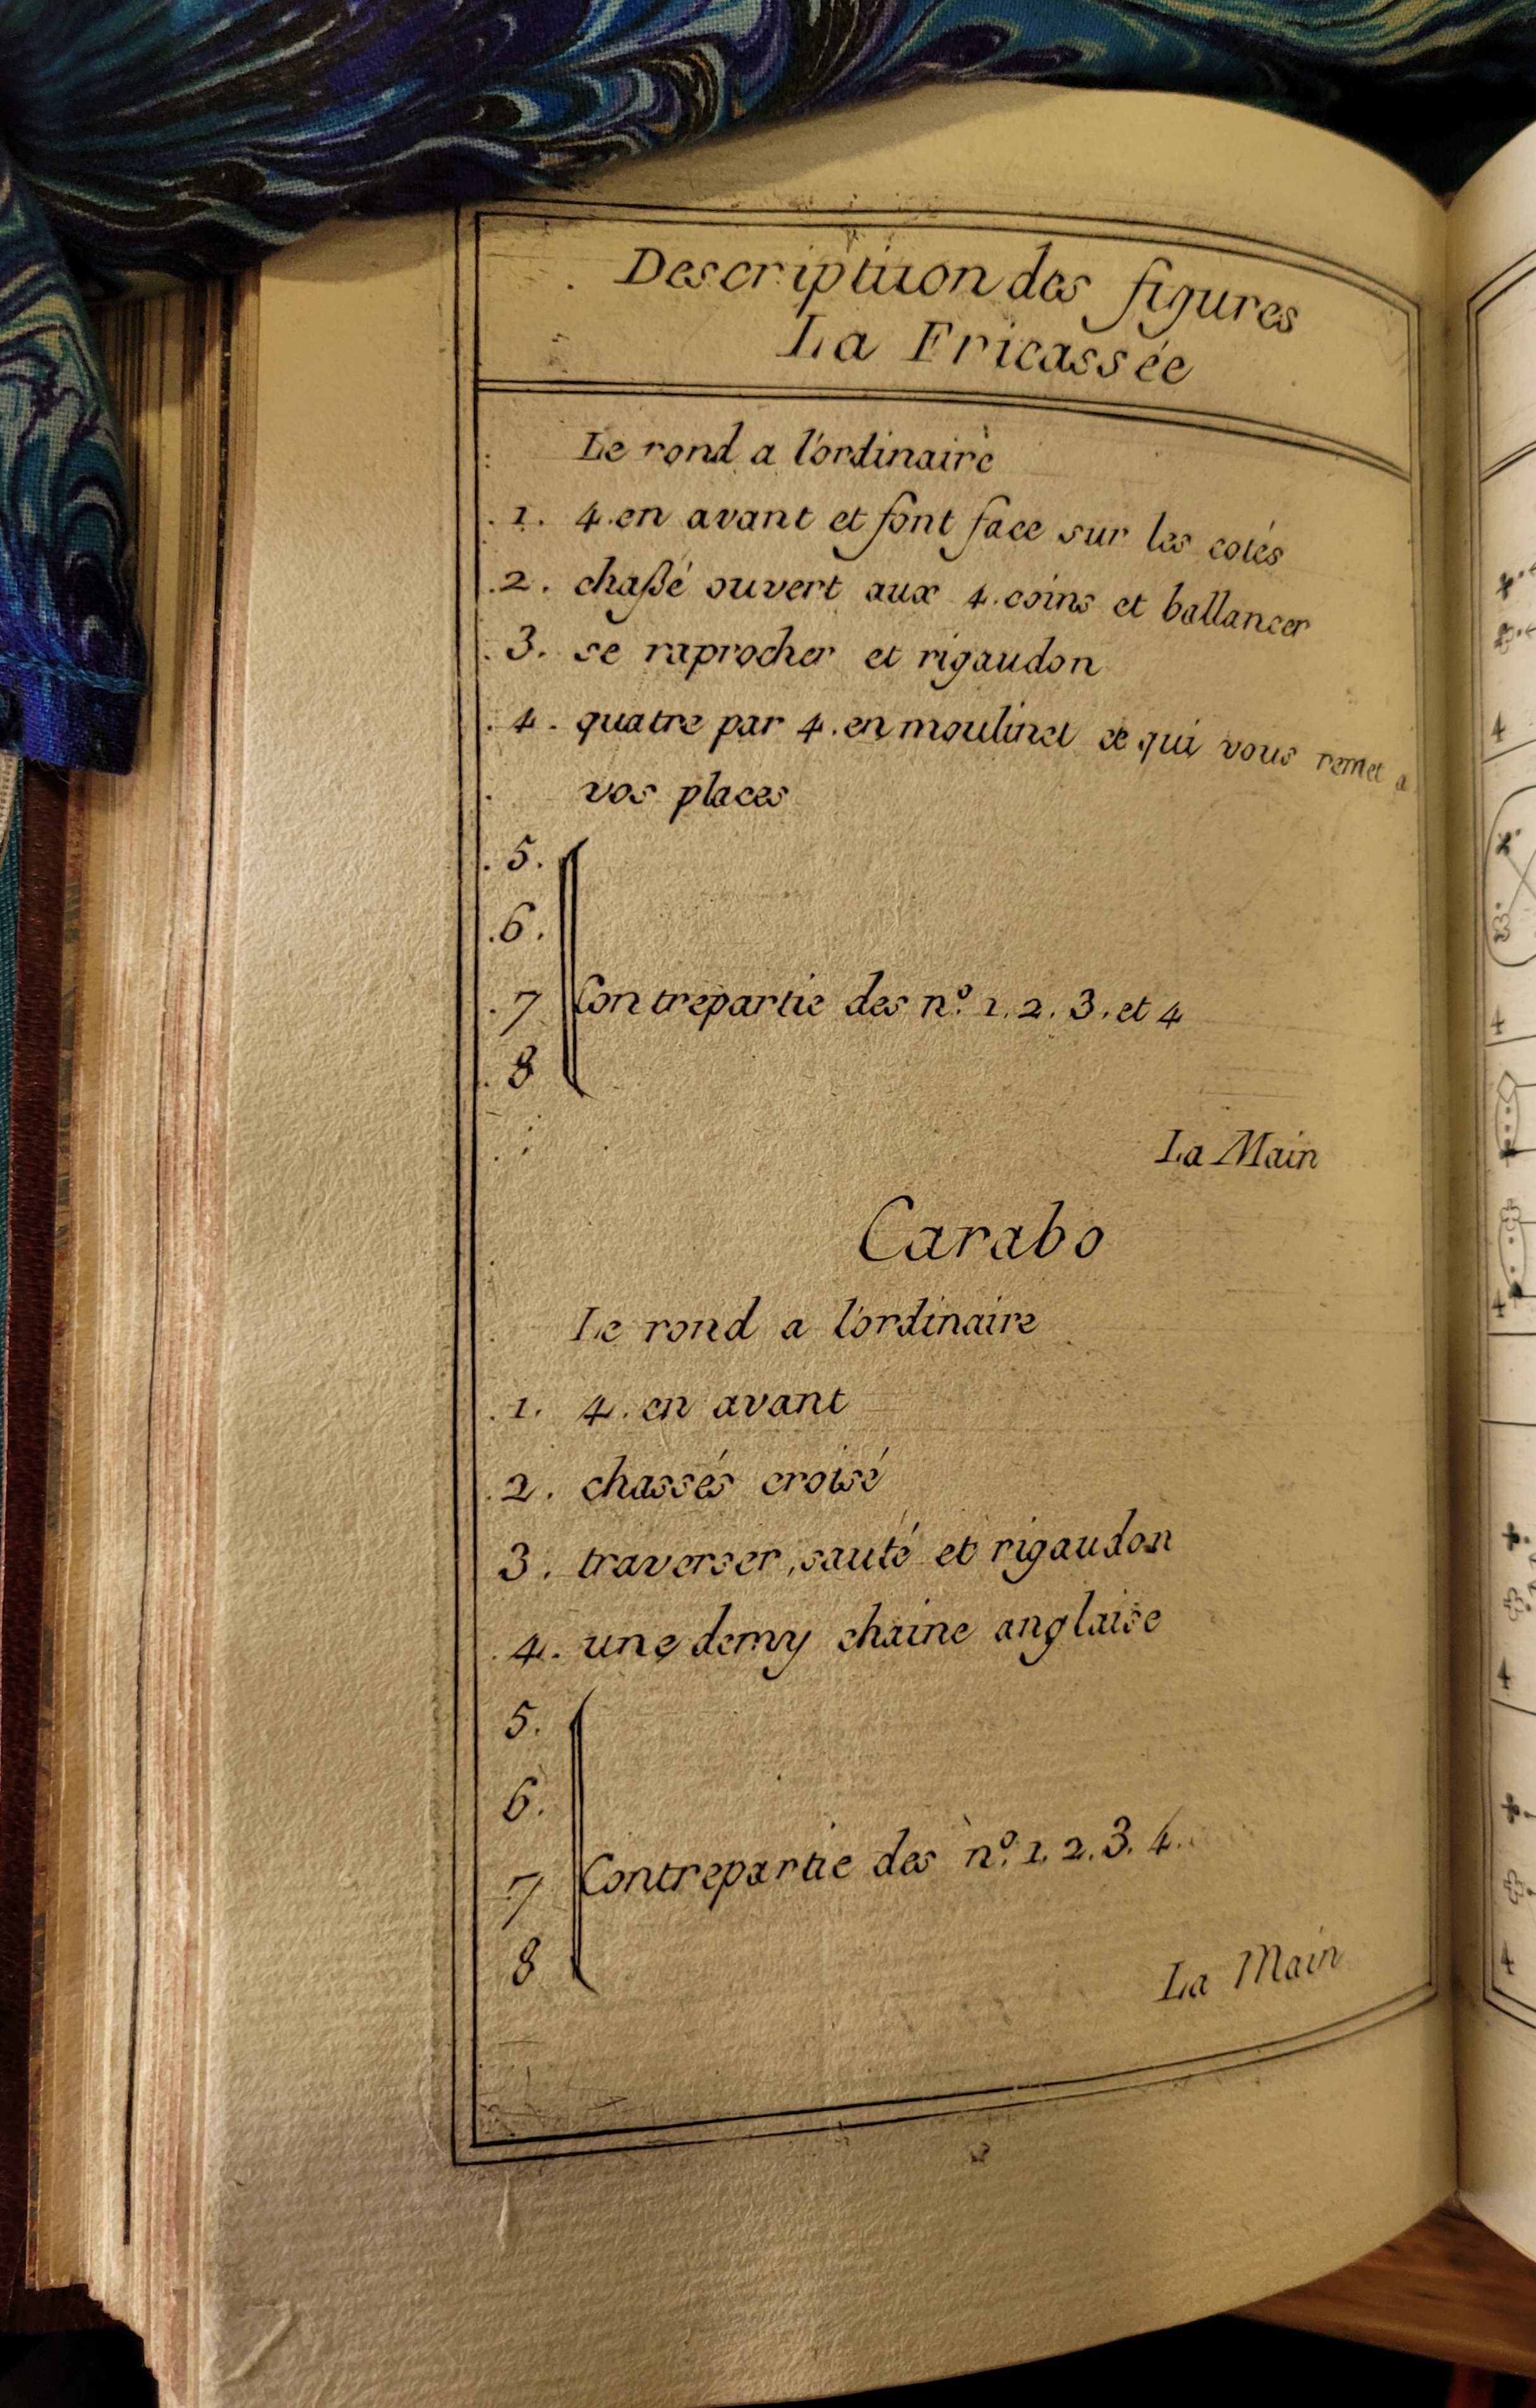 Description des figures
La Fricassée
Le rond a l'ordinaire
1. 4. en avant et font face sur les cotés
2. chaßé ouvert aux 4. coins et ballancer
3. se raprocher et rigaudon
4. quatre par 4. en moulinet ce qui vous remet a
vos places
5.
6.
7 Contrepartie des nº. 1. 2. 3. et 4
8
La Main
Carabo
Le rond a l'ordinaire
1. 4. en avant
2. chassés croisé
3. traverser, sauté et rigaudon
4. une demy chaine anglaise
5.
6.
7 Contrepartie des nº. 1. 2. 3. 4.
8
La Main